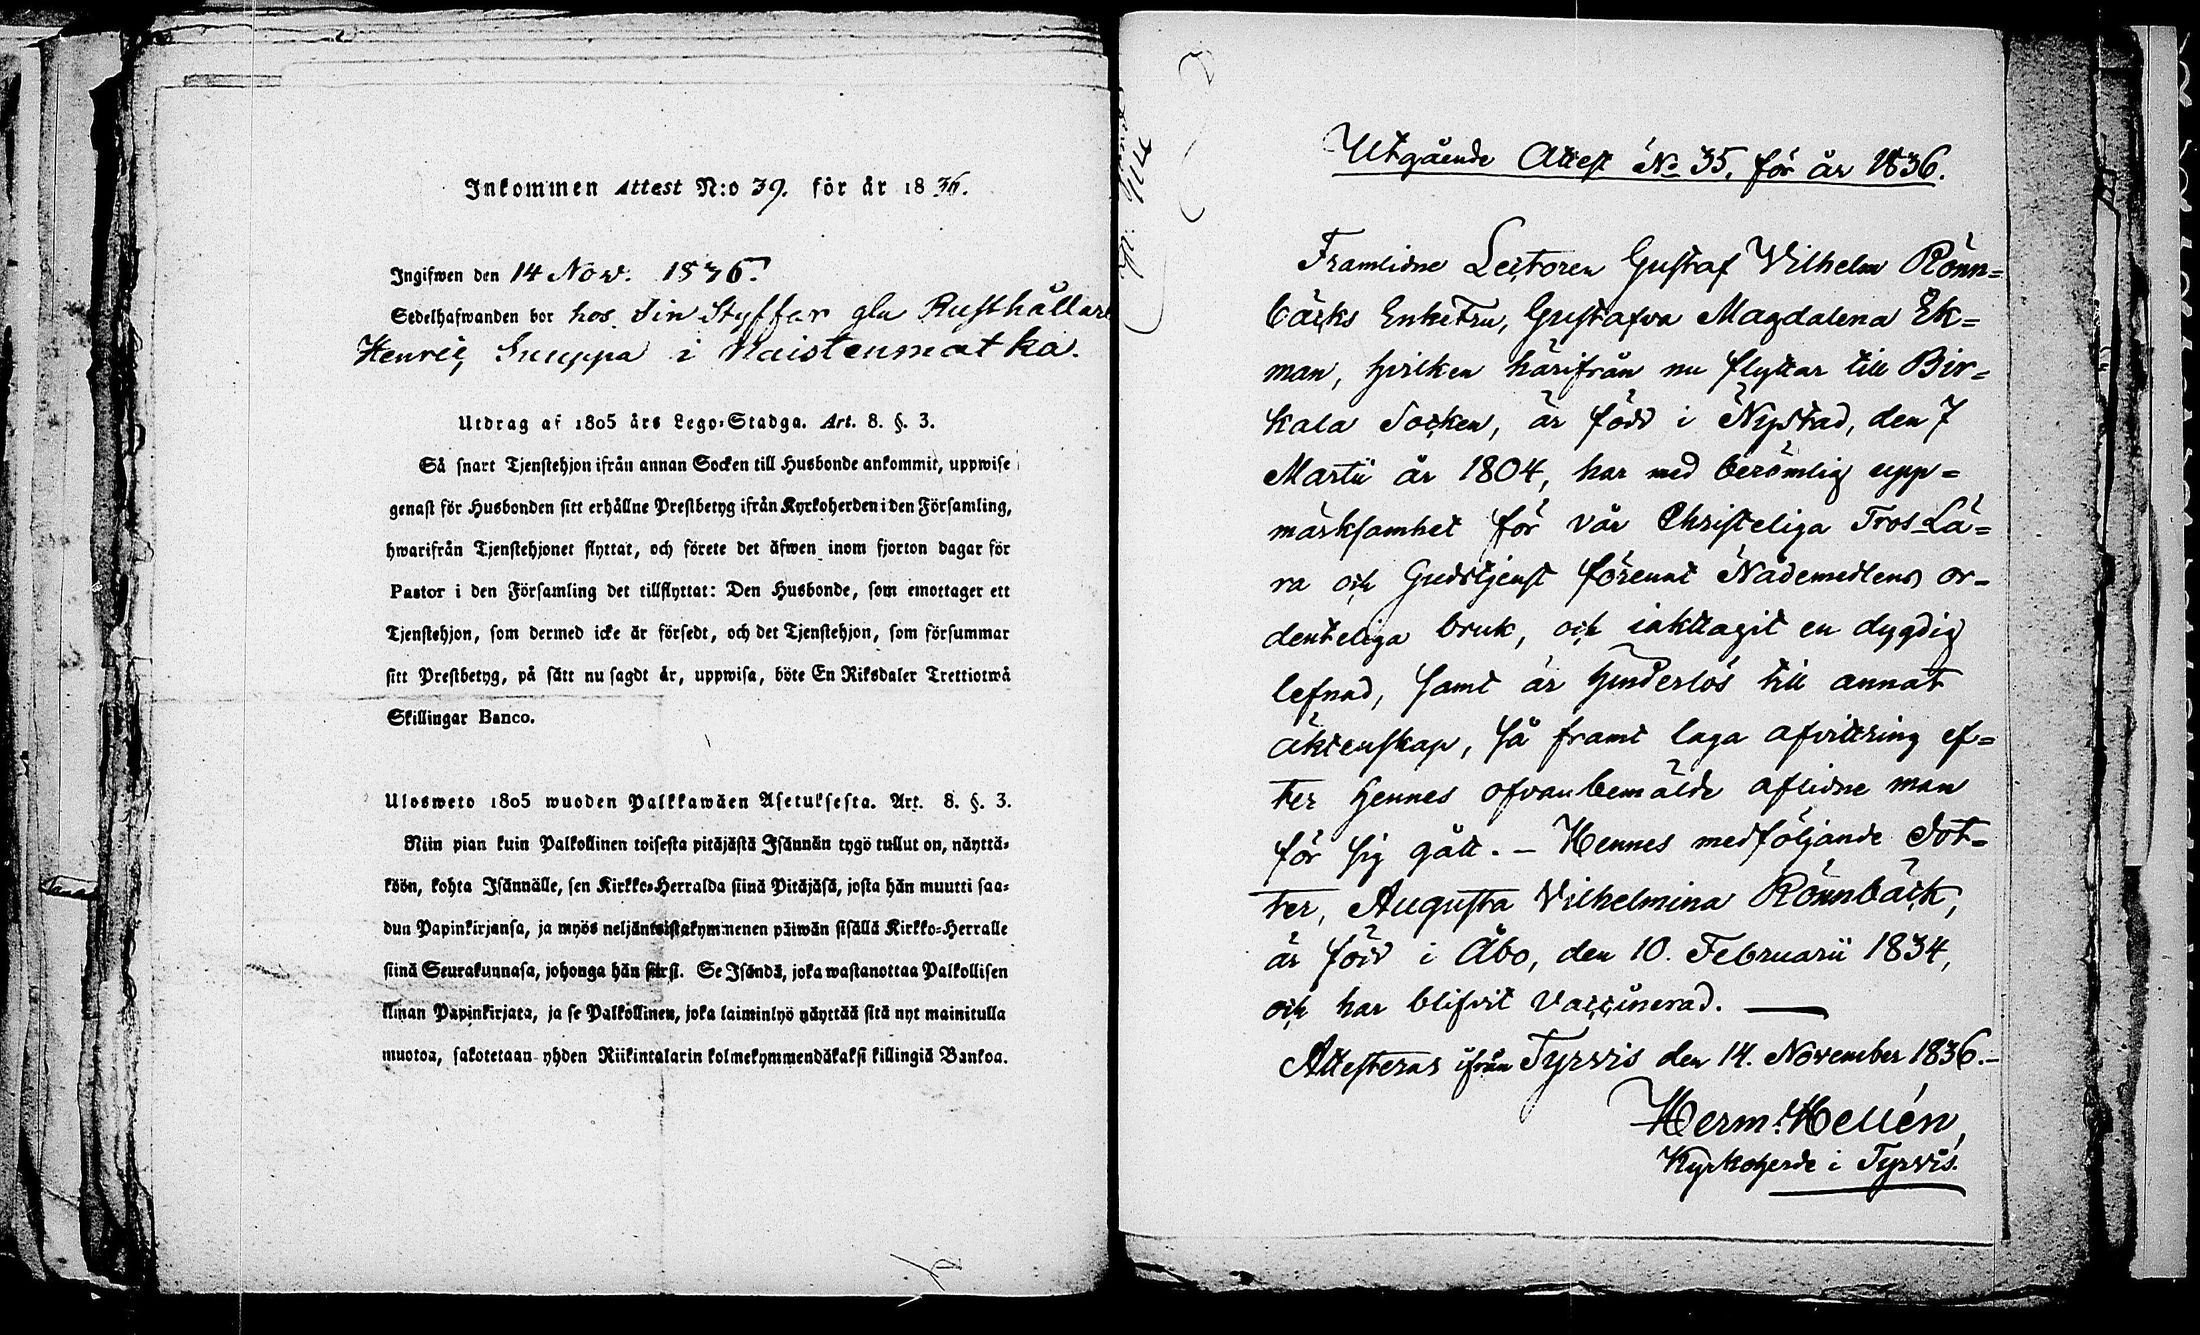 Inkommen Attest N:o 39. för år 1836.
Ingifwen den 14 Nov. 1836.
Sedelhafwanden bor hos sin Styffar gla Rusthållare
Henric Snuppa i Naistenmatka.
Utdrag af 1805 års Lego-Stadga. Art. 8. §. 3.
Så snart Tjenstehjon ifrån annan Socken till Husbonde ankommit, uppwise
genast för Husbonden sitt erhållne Prestbetyg ifrån Kyrkoherden i den Församling,
hwarifrån Tjenstehjonet flyttat, och förete det äfwen inom fjorton dagar för
Pastor i den Församling det tillflyttat: Den Husbonde, som emottager ett
Tjenstehjon, som dermed icke är försedt, och det Tjenstehjon, som försummar
sitt Prestbetyg, på sätt nu sagdt är, uppwisa, böte En Riksdaler Trettiotwå
Skillingar Banco.
Ulosweto 1805 wuoden Palkkawäen Asetuksesta. Art. 8. §. 3.
Niin pian kuin Palkollinen toisesta pitäjästä Isännän tygö tullut on, näyttä-
köön, kohta Isännälle, sen Kirkko-Herralda siinä Pitäjäsä, josta hän muutti saa-
dun Papinkirjansa, ja myös neljäntoistakymmenen päiwän sisällä Kirkko-Herralle
siinä Seurakunnasa, johonga hän siirsi. Se Isändä, joka wastanottaa Palkollisen
ilman Papinkirjata, ja se Palkollinen, joka laiminlyö näyttää sitä nyt mainitulla
muotoa, sakotetaan yhden Riikintalarin kolmekymmendäkaksi killingiä Bankoa.
Utgående Attest No 35, för år 1836.
Framlidne Lectoren Gustaf Vilhelm Rönn=
bäcks Enkefru, Gustafva Magdalena Ek=
man, hvilken härifrån nu flyttar till Bir=
kala Socken, är född i Nystad, den 7
Martii år 1804, har med berömlig upp=
märksamhet för vår Christeliga Tros-Lä=
ra och Gudstjenst förenat Nådemedlens or-
denteliga bruk, och iakttagit en dygdig
lefnad, samt är hinderlös till annat
äktenskap, så framt laga afvittring ef=
ter hennes ofvanbemälde aflidne man
för sig gått. – Hennes medföljande dot=
ter, Augusta Vilhelmina Rönnbäck,
är född i Åbo, den 10. Februarii 1834,
och har blifvit vaccinerad. —
Attesteras ifrån Tyrvis den 14. November 1836.–
Herm. Hellén,
Kyrkoherde i Tyrvis.